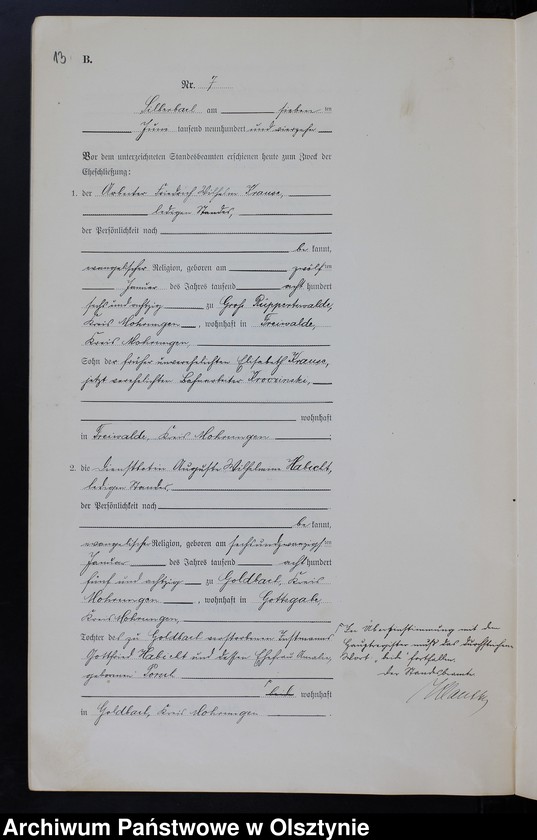 13 B.
Nr. 7
Silberbach am sieben ten
Juni tausend neunhundert und vierzehn
Vor dem unterzeichneten Standesbeamten erschienen heute zum Zweck der
Eheschließung:
1. der Arbeiter Friedrich Wilhelm Krause,
ledigen Standes,
der Persönlichkeit nach
be kannt,
evangelischer Religion, geboren am zwölf ten
Januar des Jahres tausend acht hundert
sechs und achtzig zu Groß Rüppertswalde,
Kreis Mohrungen, wohnhaft in Freiwalde,
Kreis Mohrungen,
Sohn der früher unverehelichten Elisabeth Krause,
jetzt verehelichten
wohnhaft
in Freiwalde, Kreis Mohrungen
2. die Dienstbotin Auguste Wilhelmine Habicht,
ledigen Standes,
der Persönlichkeit nach
be kannt,
evangelischer Religion, geboren am sechsundzwanzigs ten
Januar des Jahres tausend acht hundert
fünf und achtzig zu Goldbach, Kreis
Mohrungen, wohnhaft in Gottsgabe,
Kreis Mohrungen,
Tochter des zu Goldbach verstorbenen Instmanns
Gottfried Habicht und dessen Ehefrau Amalie,
geborenen
beide wohnhaft
in Goldbach, Kreis Mohrungen
In Übereinstimmung mit dem
Hauptregister muß das durchstrichene
Wort „beide“ fortfallen.
der Standesbeamte
Archiwum Państwowe w Olsztynie